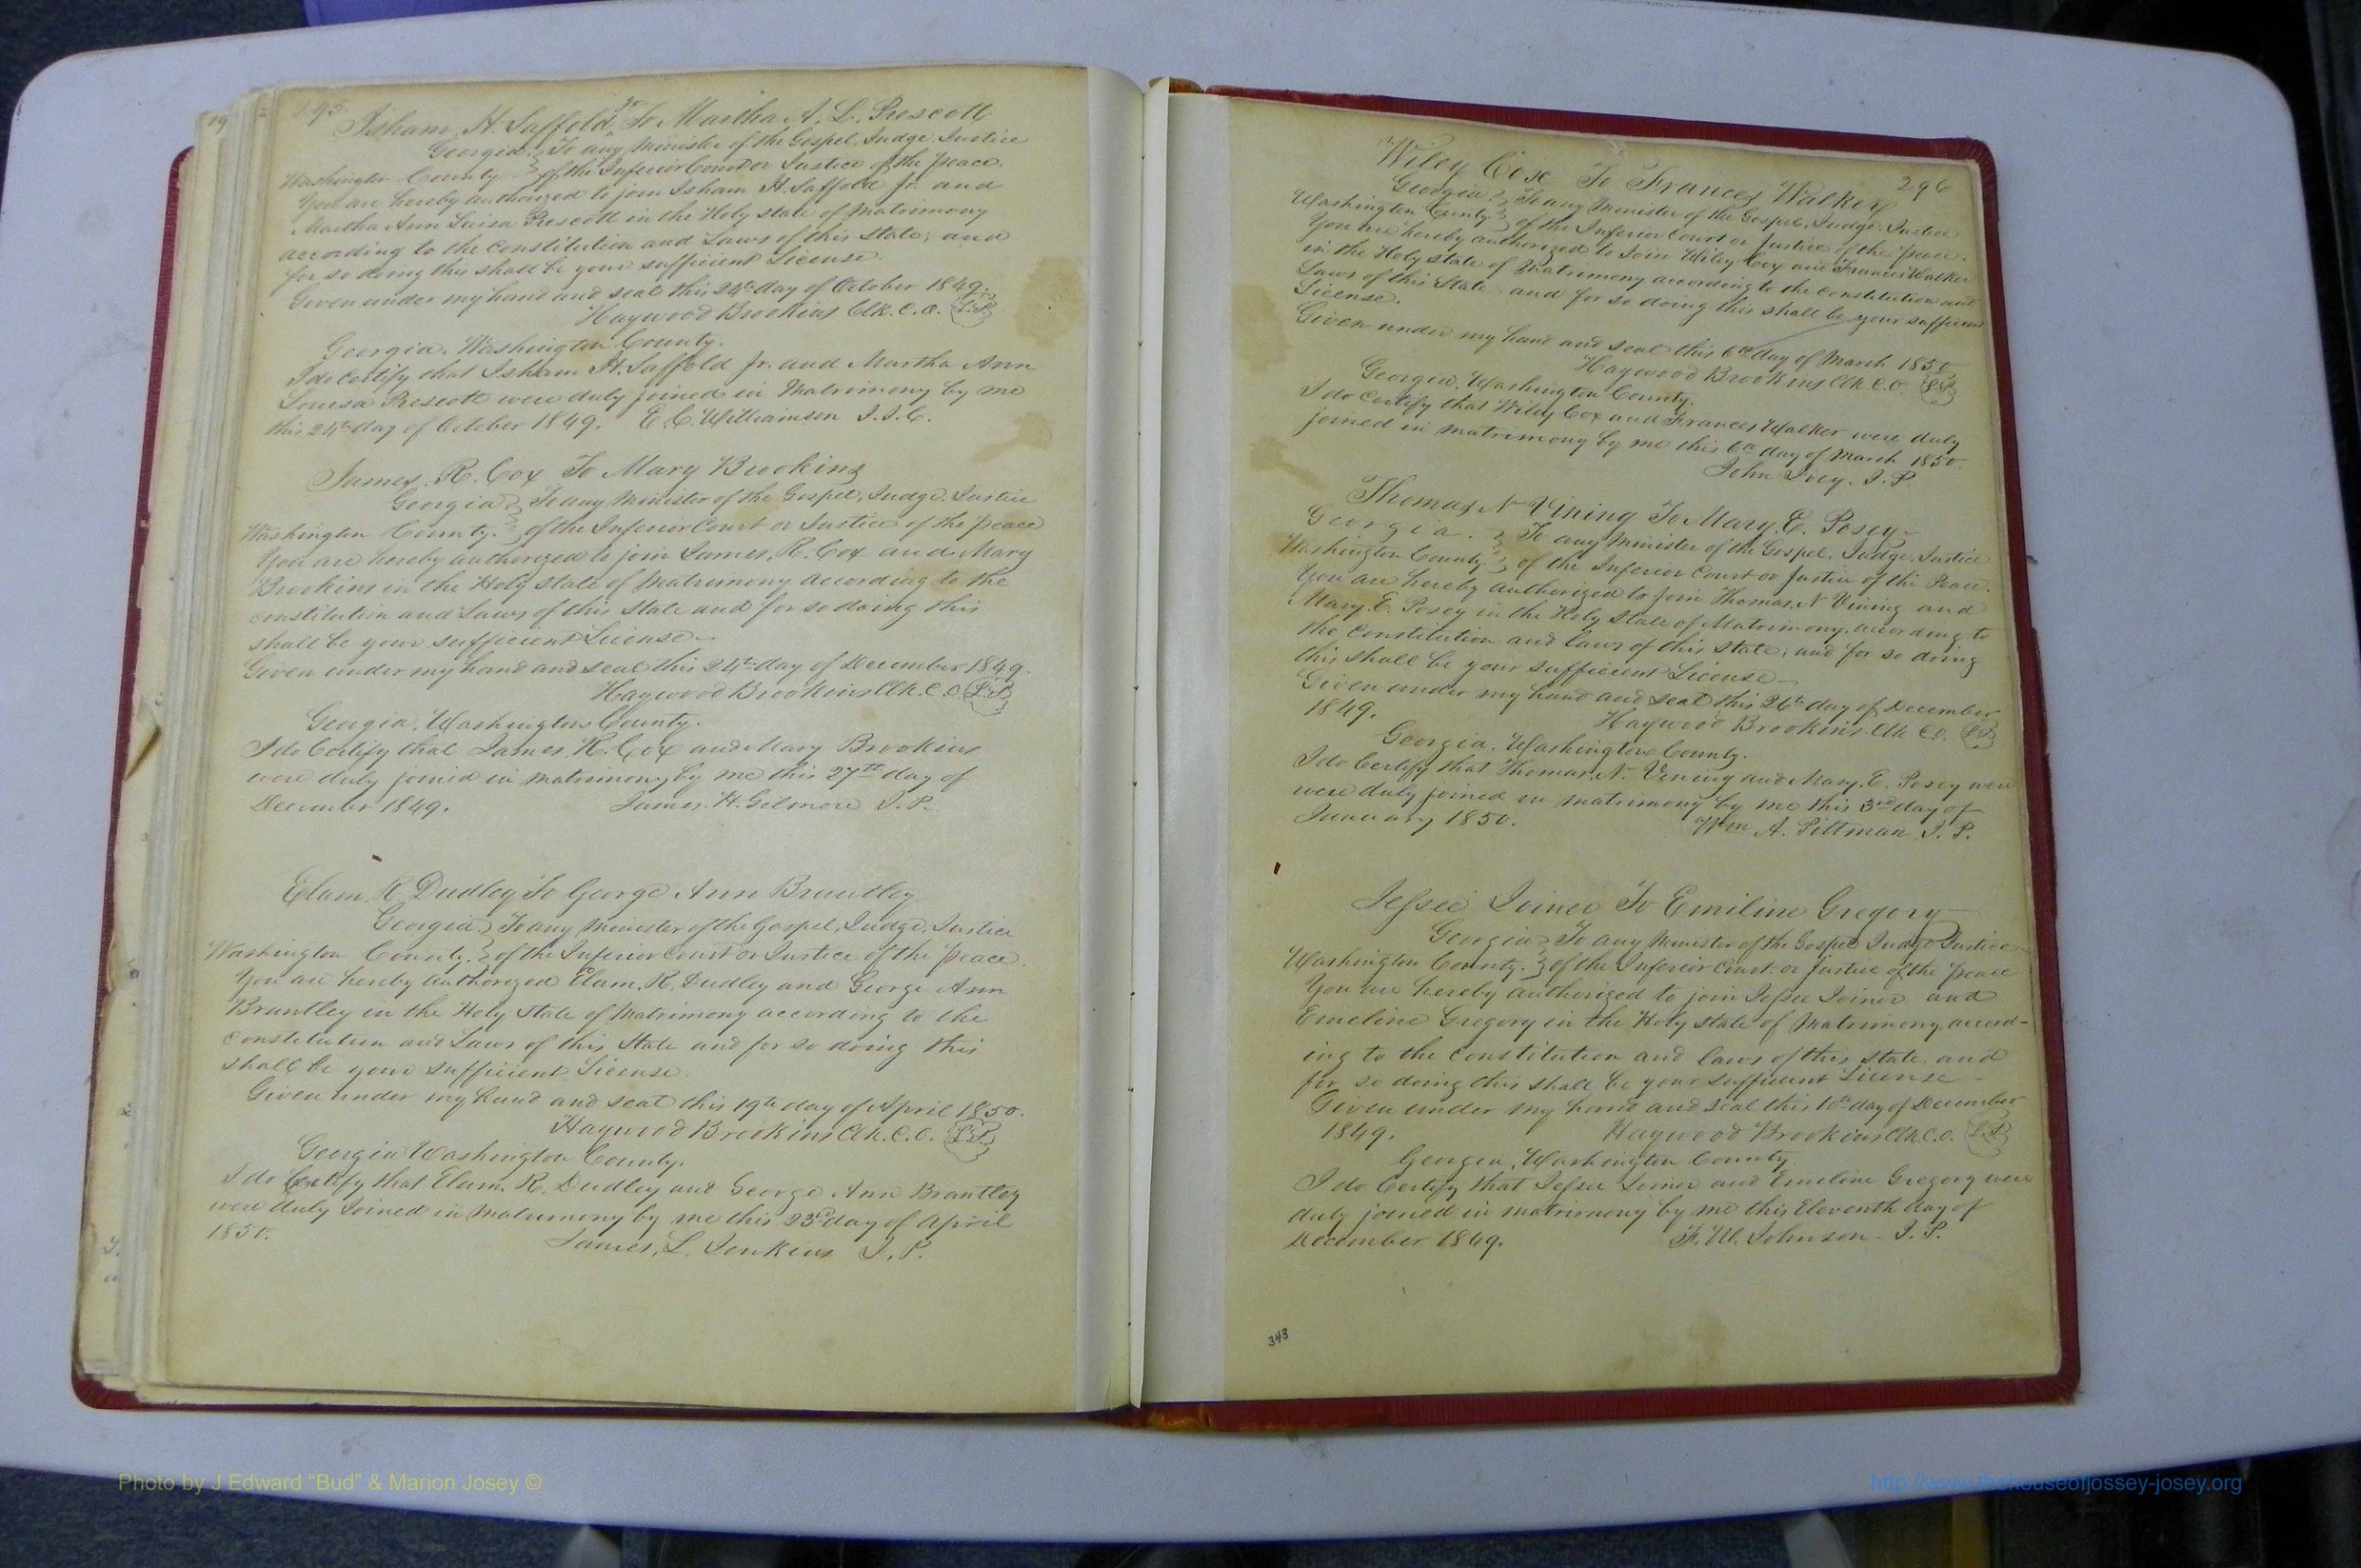 295.
Isham. H. Saffold Jr To Martha A. L. Prescott
Georgia. } To any Minister of the Gospel, Judge, Justice
Washington County } of the Inferior Court or Justice of the peace.
You are hereby authorized to join Isham H. Saffold Jr. and
Martha Ann Luisa Prescott in the Holy state of Matrimony
according to the constitution and Laws of this State; and
for so doing this shall be your sufficient License.
Given under my hand and seal this 24th day of October 1849.
Haywood Brookins Clk. C. O. L.S.
Georgia. Washington County.
I do certify that Isham H. Saffold Jr. and Martha Ann
Louisa Prescott were duly joined in Matrimony by me
this 24th day of October 1849. E. C. Williamson J. I. C.
James. R. Cox To Mary Brookins
Georgia } To any Minister of the Gospel, Judge, Justice
Washington County. } of the Inferior Court or Justice of the peace
You are hereby authorized to join James. R. Cox and Mary
Brookins in the Holy state of Matrimony according to the
constitution and Laws of this State and for so doing this
shall be your sufficient License
Given under my hand and seal this 24th day of December 1849.
Haywood Brookins Clk. C. O. L.S.
Georgia, Washington County.
I do Certify that James. R. Cox and Mary Brookins
were duly joined in matrimony by me this 27th day of
December 1849. James. H. Gilmore J. P.
Elam. R. Dudley To George Ann Brantley
Georgia } To any Minister of the Gospel, Judge, Justice
Washington County. } of the Inferior Court or Justice of the peace.
You are hereby authorized Elam. R. Dudley and George Ann
Brantley in the Holy State of Matrimony according to the
constitution and Laws of this State and for so doing this
shall be your sufficient License.
Given under my hand and seal this 19th day of April 1850.
Haywood Brookins Clk. C. O. L.S.
Georgia Washington County.
I do Certify that Elam. R. Dudley and George Ann Brantley
were duly Joined in Matrimony by me this 23rd day of April
1850. James, L. Jenkins J. P.
296
Wiley Cox To Frances Walker
Georgia } To any Minister of the Gospel, Judge, Justice
Washington County } of the Inferior Court or Justice of the peace.
You are hereby authorized to Join Wiley Cox and Frances Walker
in the Holy state of Matrimony according to the constitution and
Laws of this State and for so doing this shall be your sufficient
License.
Given under my hand and seal this 6th day of March 1850
Haywood Brookins Clk. C. O. L.S.
Georgia, Washington County.
I do Certify that Wiley Cox and Frances Walker were duly
joined in matrimony by me this 6th day of March 1850.
John Ivey. J. P.
Thomas N Vining To Mary. E. Posey
Georgia. } To any Minister of the Gospel, Judge, Justice
Washington County } of the Inferior Court or Justice of the Peace.
You are hereby authorized to join Thomas. N Vining and
Mary. E. Posey in the Holy State of Matrimony according to
the constitution and laws of this State; and for so doing
this shall be your sufficient License
Given under my hand and seal this 26th day of December
1849. Haywood Brookins. Clk C. O. L.S.
Georgia, Washington County.
I do Certify that Thomas. N. Vining and Mary. E. Posey were
were duly joined in matrimony by me this 3rd day of
January 1850. Wm A. Pittman J. P.
Jessee Joiner To Emiline Gregory
Georgia } To any Minister of the Gospel Judge Justice
Washington County. } of the Inferior Court. or Justice of the peace
You are hereby authorized to join Jessee Joiner and
Emeline Gregory in the Holy state of Matrimony, accord-
ing to the constitution and laws of this state. and
for so doing this shall be your sufficient License
Given under my hand and seal this 10th day of December
1849. Haywood Brookins Clk C. O. L.S.
Georgia, Washington County
I do Certify that Jessee Joiner and Emeline Gregory were
duly joined in matrimony by me this Eleventh day of
December 1849. F. W. Johnson. J. P.
343
Photo by J Edward “Bud” & Marion Josey ©
http://www.thehouseofjossey-josey.org